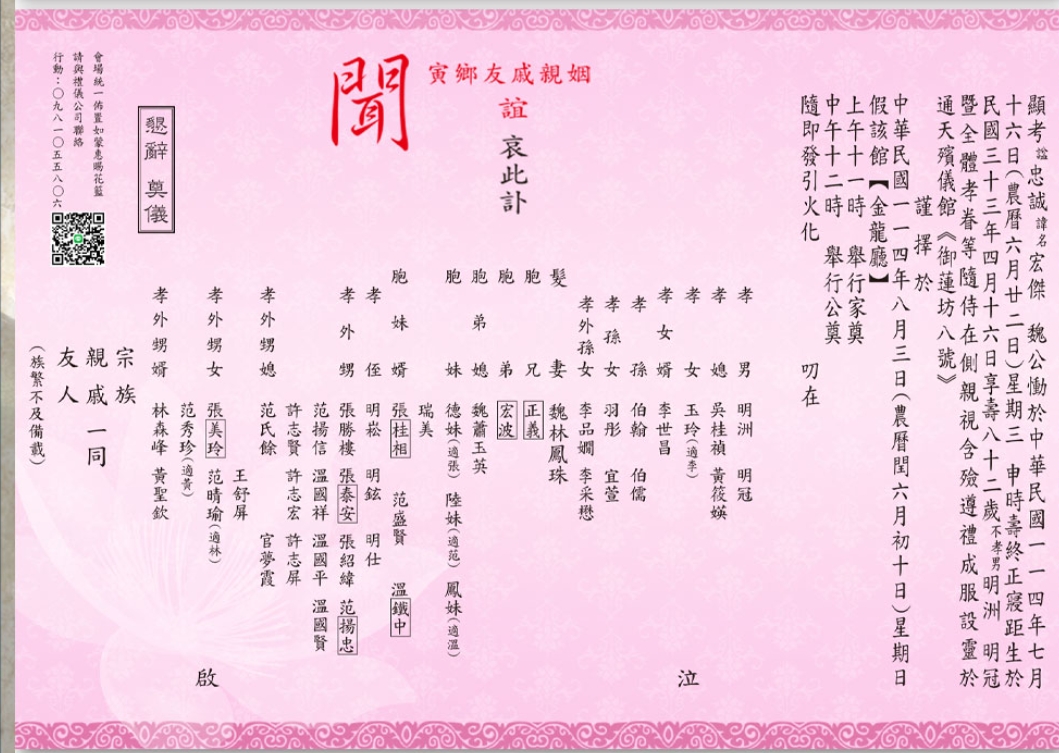 顯考諡忠誠諱名宏傑 魏公慟於中華民國一一四年七月
十六日(農曆六月廿二日)星期三 申時壽終正寢距生於
民國三十三年四月十六日享壽八十二歲不孝男明洲 明冠
暨全體孝眷等隨侍在側親視含殮遵禮成服設靈於
通天殯儀館《御蓮坊八號》
謹擇於
中華民國一一四年八月三日(農曆閏六月初十日)星期日
假該館【金龍廳】
上午十一時 舉行家奠
中午十二時 舉行公奠
隨即發引火化
叨在
姻親戚友鄉寅
誼
哀此訃
聞
孝男 明洲 明冠
孝媳 吳桂禎 黃筱媖
孝女 玉玲(適李)
孝女婿 李世昌
孝孫 伯翰 伯儒
孝孫女 羽彤 宜萱
孝外孫女 李品嫺 李采懋
髮妻 魏林鳳珠
胞兄 正義
胞弟 宏波
胞弟媳 魏蕭玉英
胞妹 德妹(適張) 陸妹(適范) 鳳妹(適溫)
瑞美
胞妹婿 張桂相 范盛賢 溫鐵中
孝侄 明崧 明鉉 明仕
孝外甥 張勝樓 張泰安 張紹緯 范揚忠
范揚信 溫國祥 溫國平 溫國賢
許志賢 許志宏 許志屏
孝外甥媳 范氏餘 官夢霞
王舒屏
孝外甥女 張美玲 范晴瑜(適林)
范秀珍(適黃)
孝外甥婿 林森峰 黃聖欽
泣
啟
宗族
親戚一同
友人
(族繁不及備載)
懇辭 奠儀
會場統一佈置如蒙惠賜花籃
請與禮儀公司聯絡
行動:〇九八一〇五五八〇六